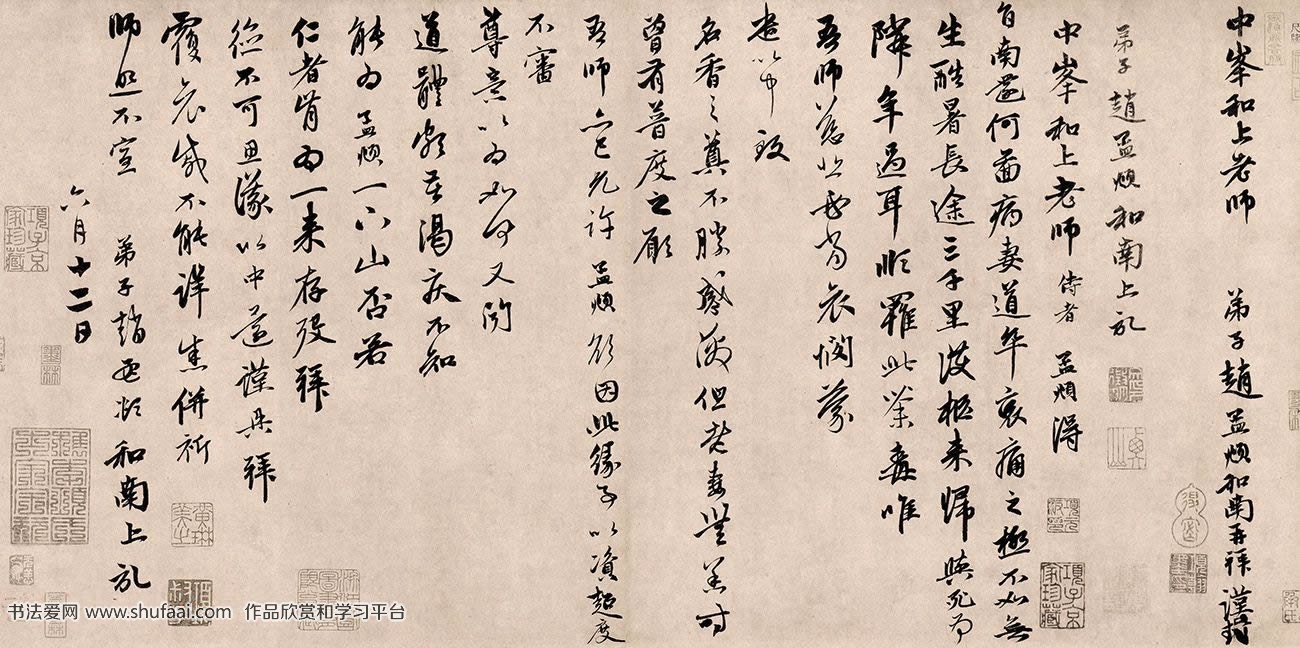 中峯和上老师 弟子趙孟頫和南再拜謹封
弟子趙孟頫和南上記
中峯和上老师侍者孟頫得
旨南還何圖病妻道卒哀痛之極不如無
生酷暑長途三千里護柩来歸與死為
隣年過耳順罹此荼毒唯
吾师慈悲必當哀憫蒙
遣以中致
名香之奠不勝感激但老妻無恙時
曾有普度之願
吾师亦已允許孟頫欲因此緣事以資超度
不審
尊意以為如何又聞
道體頗苦渴疾不知
能為孟頫一下山否若
仁者肯為一来存歿拜
德不可思議以中還謹具拜
覆哀感不能詳悉併祈
师照不宣 弟子趙孟頫和南上記
六月十二日
項子京家珍藏
项子京家珍藏
书法爱网 www.shufaai.com 作品欣赏和学习平台